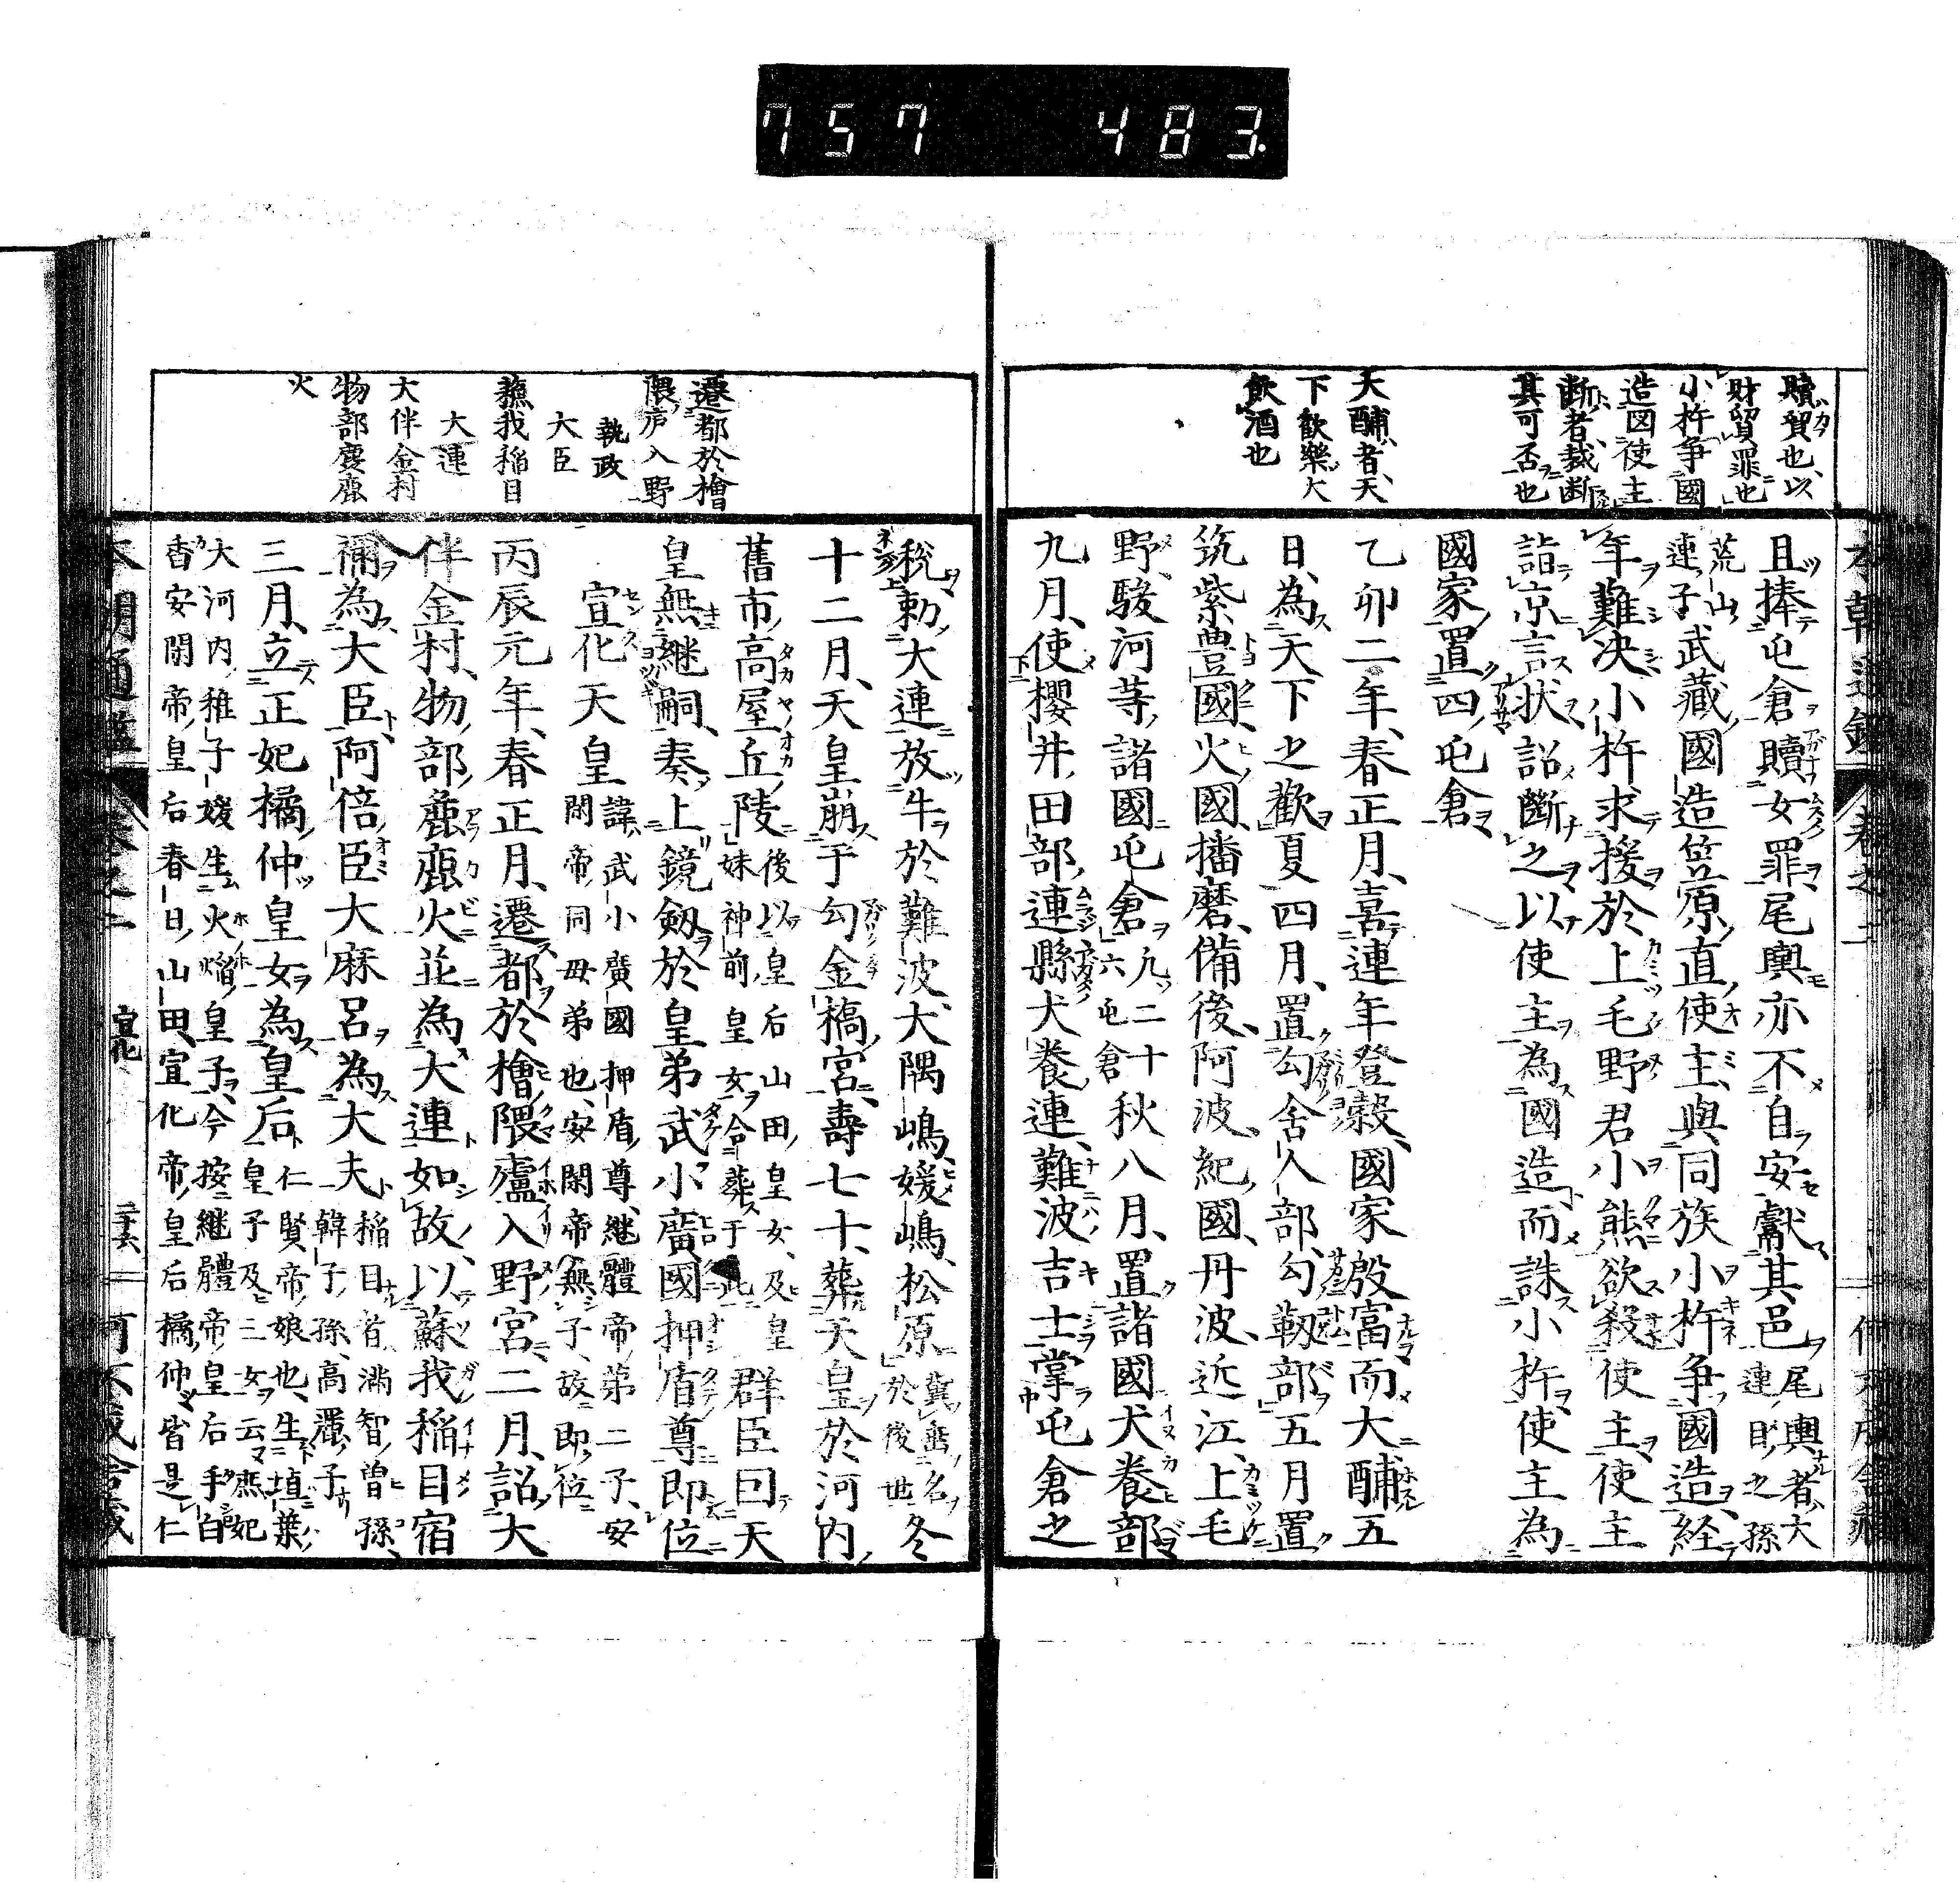 757 483.
贖貿也、以
財貿罪也
小杵争國
造図使主
断者、裁断
其可否也
天酺者、天
下歓樂大
飲酒也
且捧屯倉贖女罪尾輿亦不自安獻其邑尾輿者大
連目之孫
荒山
連子武藏國造笠原直使主、與同族小杵争國造、経
年難決小杵求援於上毛野君小熊欲殺使主使主
詣京言狀詔斷之以使主為國造而誅小杵使主為
國家置四屯倉
乙卯二年、春正月、喜連年登穀、國家殷富而大酺五
日、為天下之歡夏四月、置勾舍人部、勾靱部五月置
筑紫豊國、火國、播磨、備後、阿波、紀國、丹波、近江、上毛
野、駿河等、諸國屯倉凢二十
六屯倉
秋八月、置諸國犬養部
九月、使櫻井田部連縣犬養連、難波吉士掌屯倉之
遷都於檜
隈庐入野
執政
大臣
蘓我稲目
大連
大伴金村
物部麁鹿
火
税勅大連放牛於難波、大隅嶋、媛嶋、松原冀垂名
於後世
冬
十二月、天皇崩于勾金橋宮、壽七十、葬天皇於河内
舊市高屋丘陵後以皇后山田皇女、及皇
妹神前皇女合葬于此
群臣曰天
皇無継嗣、奏上鏡劔於皇弟武小廣國押盾尊即位
宣化天皇諱武小廣國押盾尊、継體帝第二子、安
閑帝同母弟也、安閑帝無子、故即位
丙辰元年、春正月、遷都於檜隈廬入野宮、二月、詔大
伴金村、物部麁鹿火並為大連如故、以蘇我稲目宿
禰為大臣、阿倍臣大麻呂為大夫稲目者満智曽孫、
韓子孫、高麗子
三月、立正妃橘仲皇女為皇后仁賢帝娘也、生埴葉
皇子及二女云庶妃
大河内稚子媛生火焔皇子、今按継體帝皇后手白
香安閑帝皇后春日山田、宣化帝皇后橘仲皆是仁
本朝通鑑 卷之二 宣化